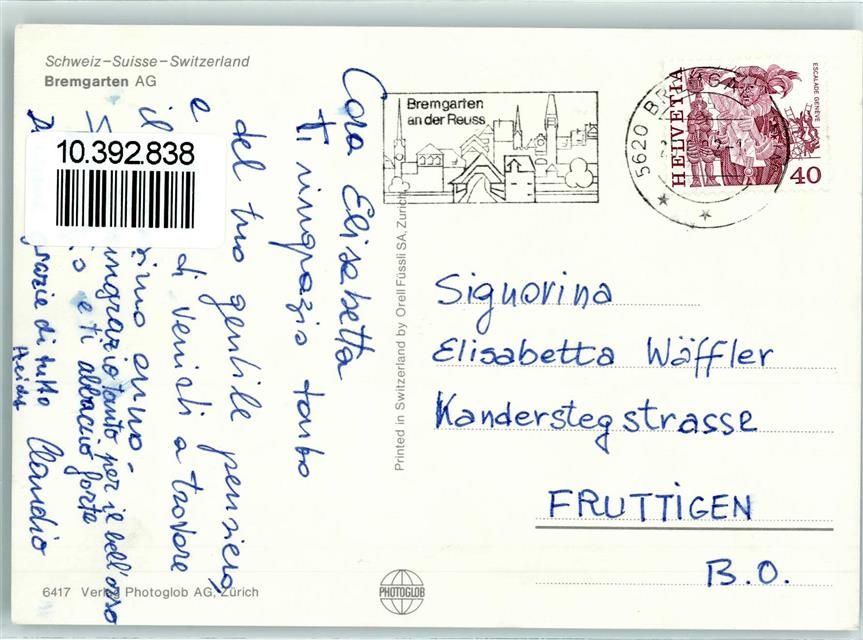 Schweiz–Suisse–Switzerland
Bremgarten AG
10.392.838
Cara Elisabetta
Ti ringrazio tanto
del tuo gentile pensiero,
e di venirti a trovare
il anno.
ringrazio tanto per il bell'orso
e ti abbaccio forte
grazie di tutto Claudio
Bremgarten
an der Reuss
5620 BR
HELVETIA
ESCALADE GENÈVE
40
Printed in Switzerland by Orell Füssli SA, Zurich
Signorina
Elisabetta Wäffler
Kanderstegstrasse
FRUTTIGEN
B.O.
6417 Verlag Photoglob AG, Zürich
PHOTOGLOB